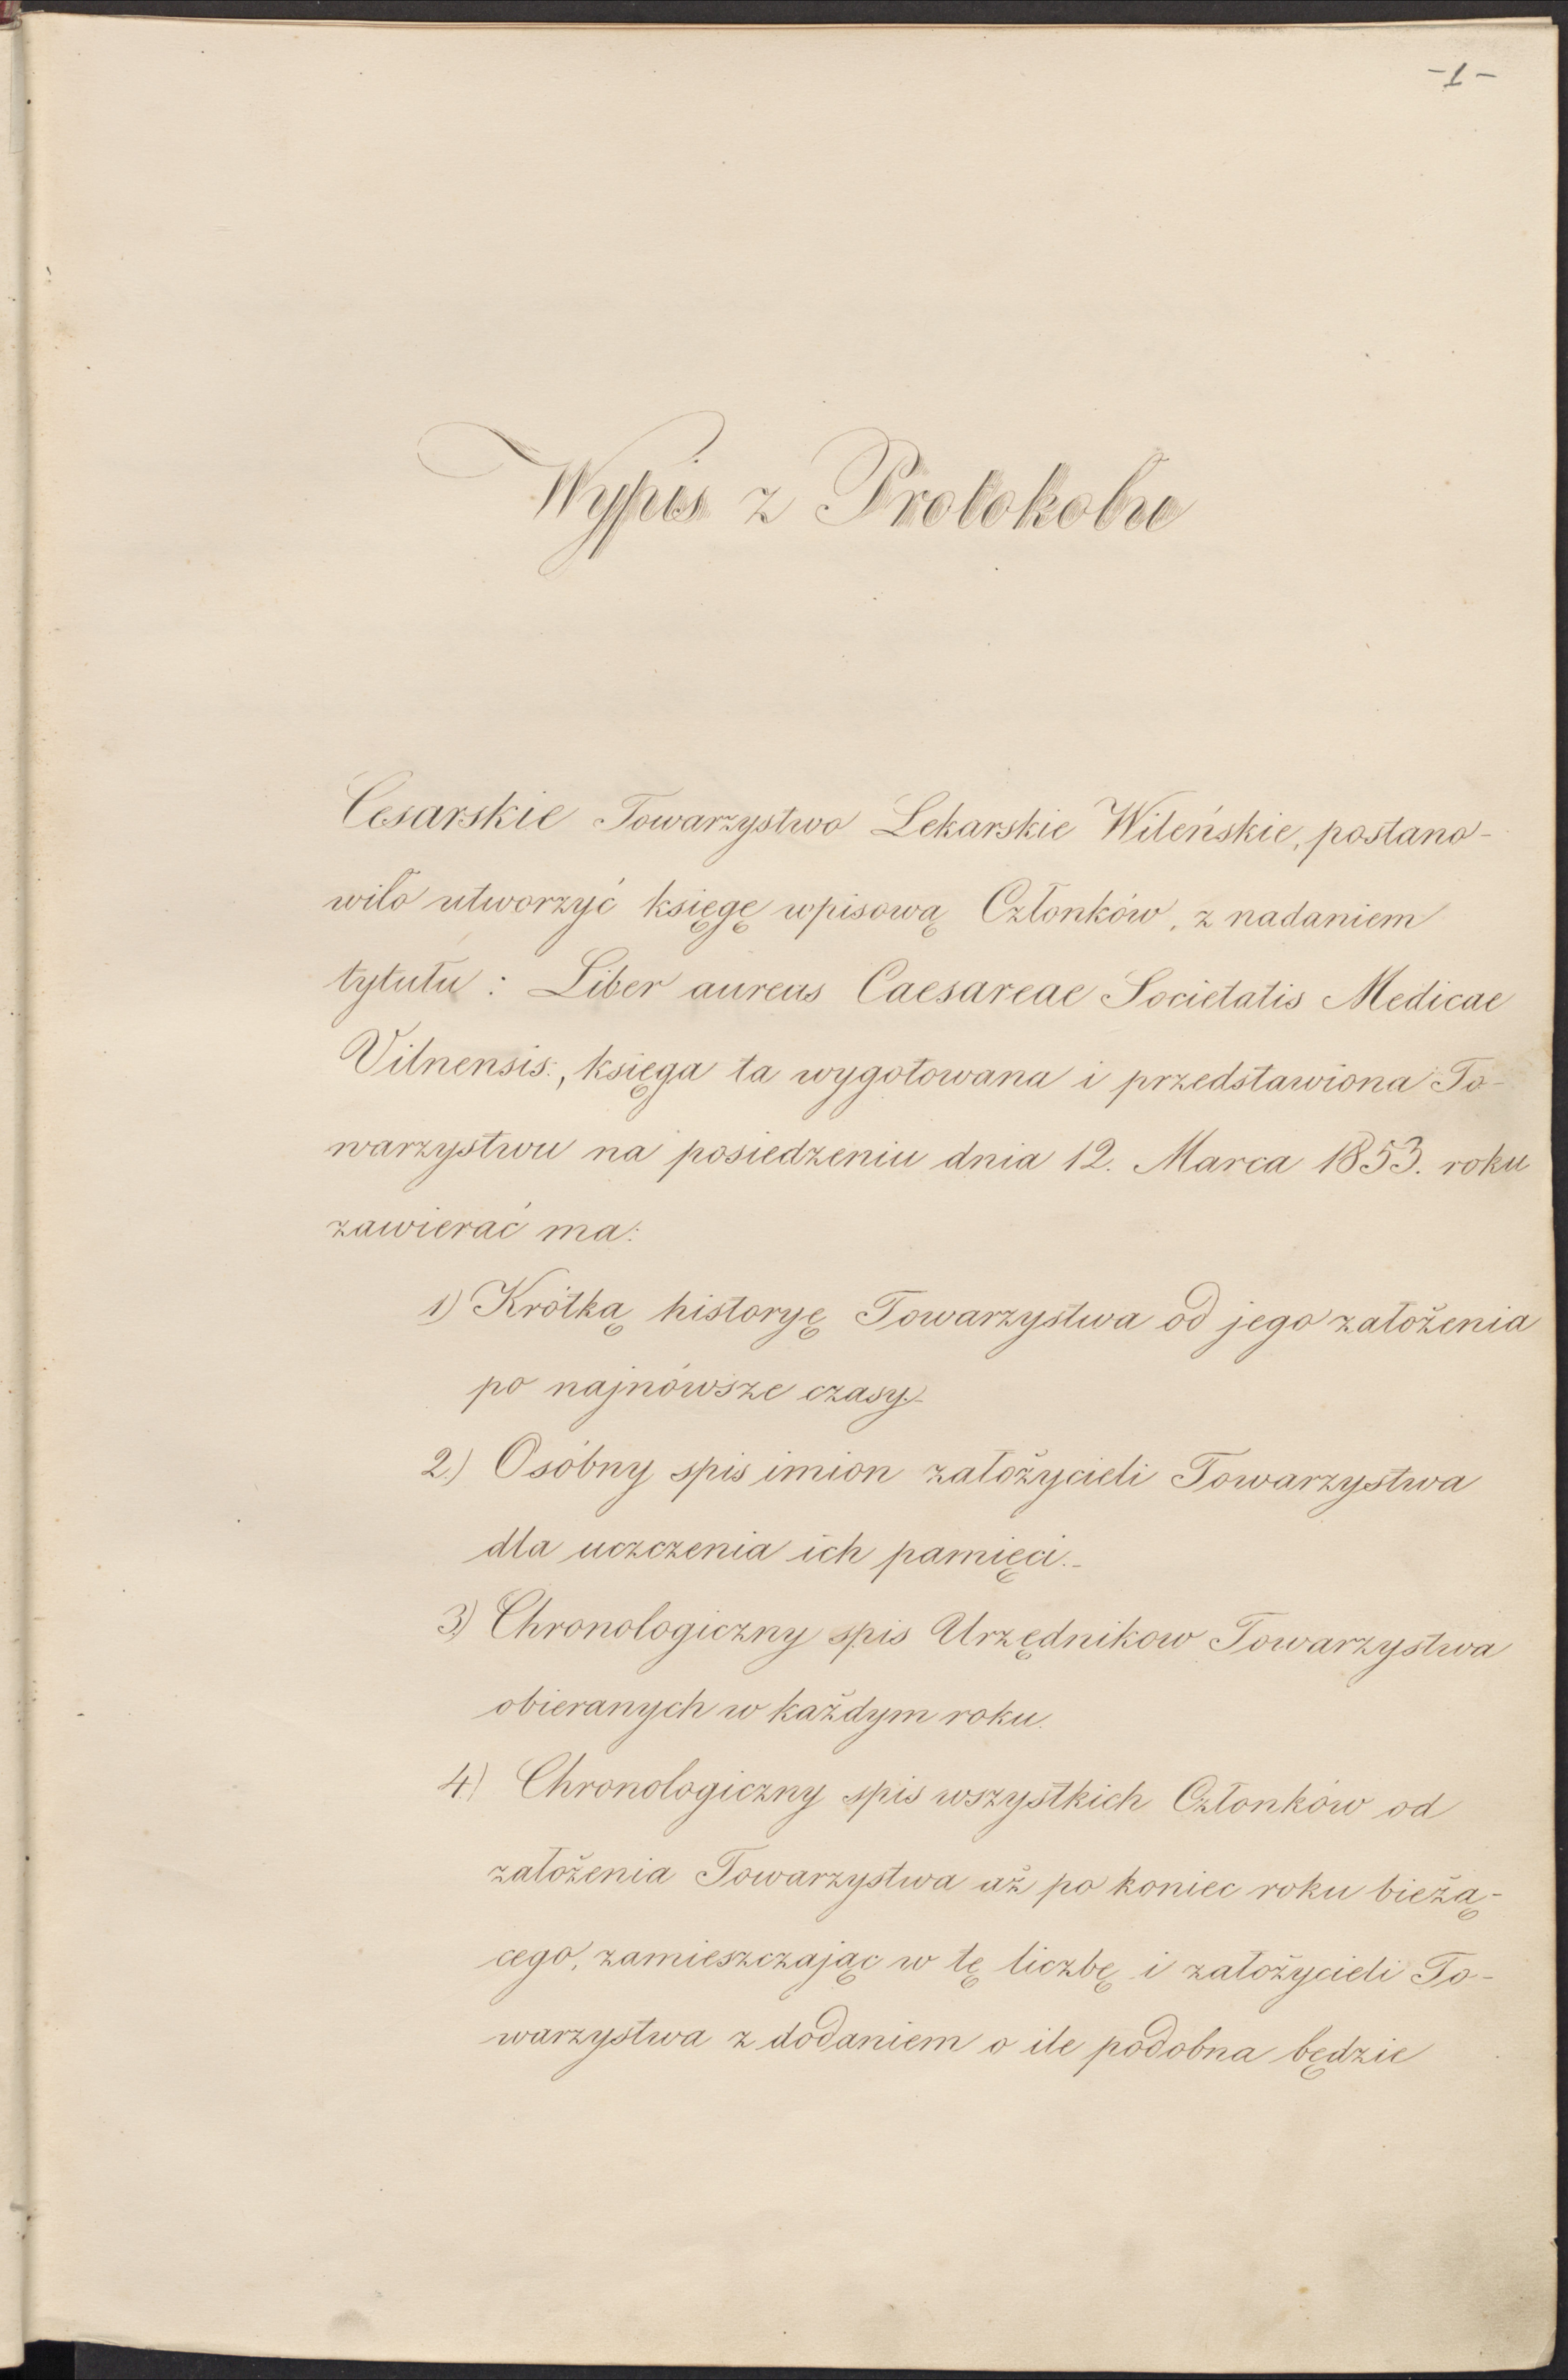 -1-
Wypis z Protokołu
Cesarskie Towarzystwo Lekarskie Wileńskie, postano-
wiło utworzyć księgę wpisową Członków, z nadaniem
tytułu: Liber aureus Caesareae Societatis Medicae
Vilnensis:, księga ta wygotowana i przedstawiona To-
warzystwu na posiedzeniu dnia 12. Marca 1853. roku
zawierać ma:
1) Krótką historyę Towarzystwa od jego założenia
po najnówsze czasy.-
2) Osóbny spis imion założycieli Towarzystwa
dla uczczenia ich pamięci.-
3) Chronologiczny spis Urzędnikow Towarzystwa
obieranych w każdym roku.
4) Chronologiczny spis wszystkich Członków od
założenia Towarzystwa aż po koniec roku bieżą-
cego, zamieszczając w tę liczbę i założycieli To-
warzystwa z dodaniem o ile podobna będzie